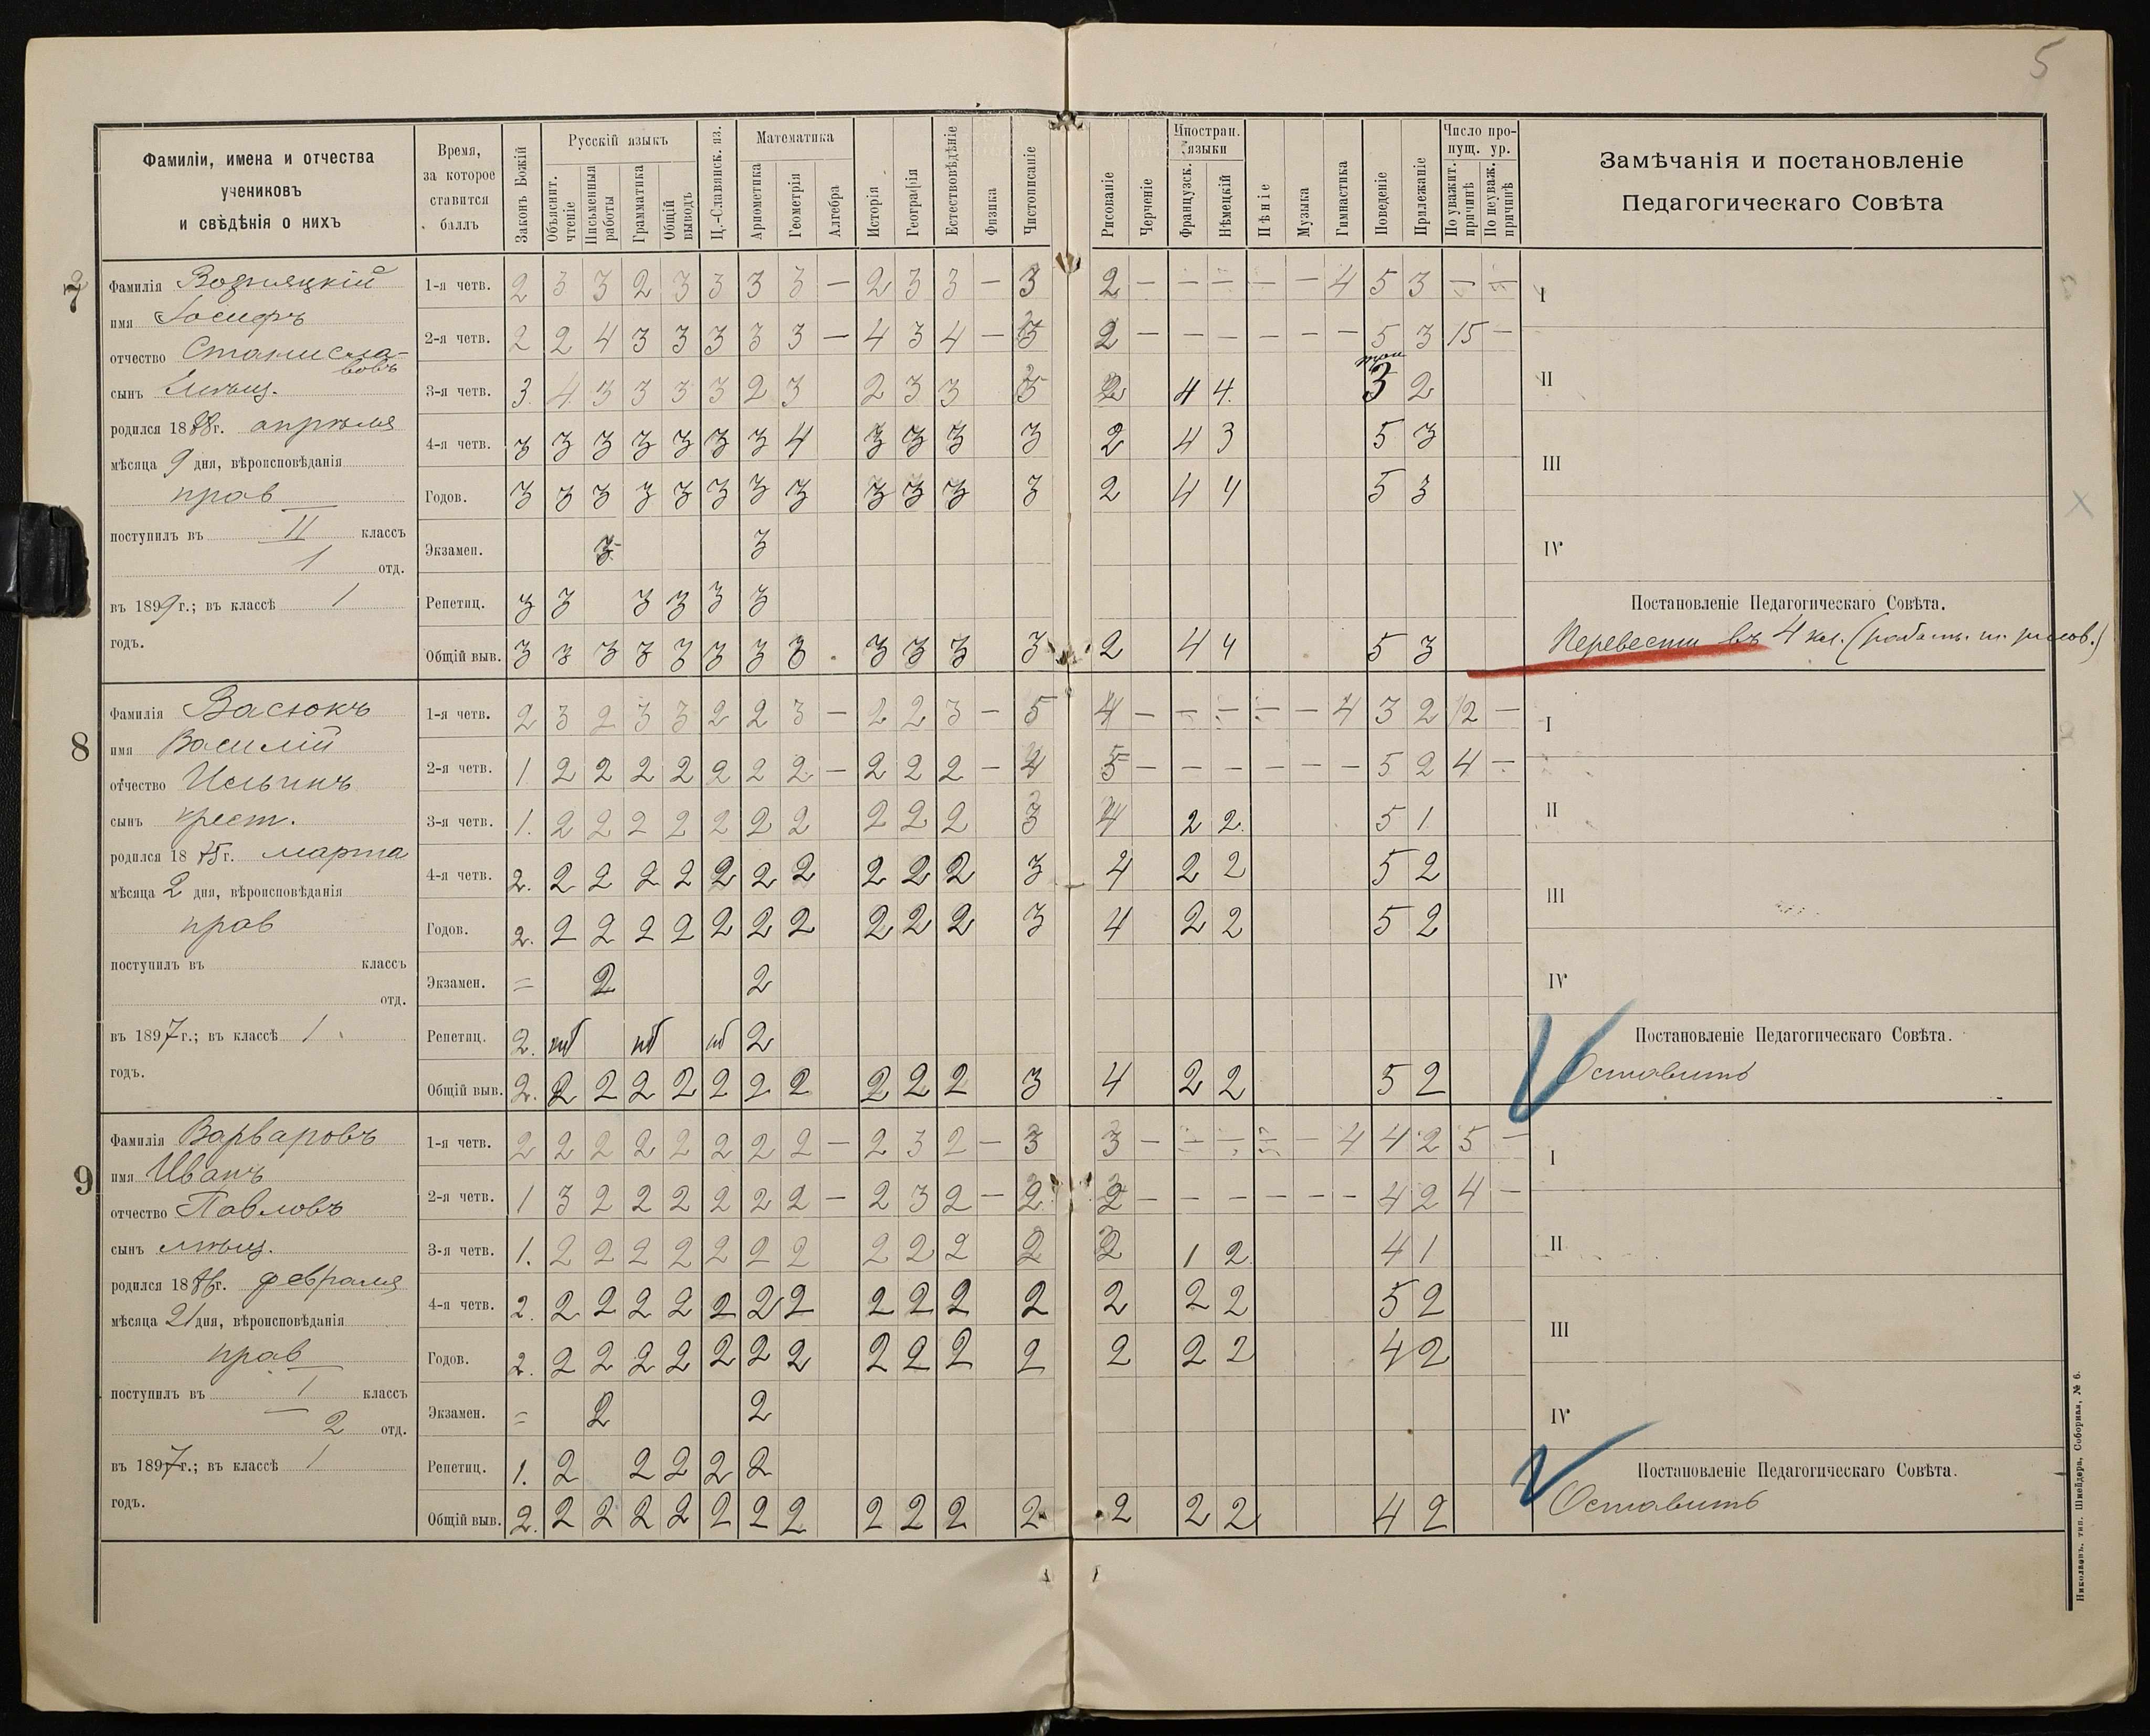 5
Фамиліи, имена и отчества
учениковъ
и свѣдѣнія о нихъ
Время,
за которое
ставится
баллъ
Законъ Божій
Русскій языкъ
Объяснит. чтеніе
Письменныя работы
Грамматика
Общій выводъ
Ц.-Славянск. яз.
Математика
Ариѳметика
Геометрія
Алгебра
Исторія
Географія
Естествовѣдѣніе
Физика
Чистописаніе
Рисованіе
Черченіе
Иностран. языки
Французск.
Нѣмецкій
Пѣніе
Музыка
Гимнастика
Поведеніе
Прилежаніе
Число пропущ. ур.
По уважит. причинѣ
По неуваж. причинѣ
Замѣчанія и постановленіе
Педагогическаго Совѣта
7
Фамилія
имя Іосифъ
отчество Станиславовъ
сынъ
родился 1888г. апрѣля
мѣсяца 9 дня, вѣроисповѣданія
прав
поступилъ въ II классъ
1 отд.
въ 1899г.; въ классѣ 1
годъ.
1-я четв. 2 3 3 2 3 3 3 3 — 2 3 3 — 3 2 — — — — — 4 5 3 — —
2-я четв. 2 2 4 3 3 3 3 3 — 4 3 4 — 3 2 — — — — — — 5 3 15 —
3-я четв. 3 4 3 3 3 3 2 3 2 3 3 3 2 4 4 3 2
4-я четв. 3 3 3 3 3 3 3 4 3 3 3 3 2 4 3 5 3
Годов. 3 3 3 3 3 3 3 3 3 3 3 3 2 4 4 5 3
Экзамен. 3 3
Репетиц. 3 3 3 3 3 3
Общій выв. 3 3 3 3 3 3 3 3 3 3 3 3 2 4 4 5 3
I
II
III
IV
Постановленіе Педагогическаго Совѣта.
Перевести въ 4 кл.
8
Фамилія Васюкъ
имя Василій
отчество Ильинъ
сынъ крест.
родился 1885г. марта
мѣсяца 2 дня, вѣроисповѣданія
прав
поступилъ въ классъ
отд.
въ 1897г.; въ классѣ 1
годъ.
1-я четв. 2 3 2 3 3 2 2 3 — 2 2 3 — 5 4 — — — — — 4 3 2 12 —
2-я четв. 1 2 2 2 2 2 2 2 — 2 2 2 — 4 5 — — — — — — 5 2 4 —
3-я четв. 1. 2 2 2 2 2 2 2 2 2 2 3 4 2 2 5 1
4-я четв. 2. 2 2 2 2 2 2 2 2 2 2 3 4 2 2 5 2
Годов. 2. 2 2 2 2 2 2 2 2 2 2 3 4 2 2 5 2
Экзамен. = 2 2
Репетиц. 2. нб нб нб 2
Общій выв. 2. 2 2 2 2 2 2 2 2 2 2 3 4 2 2 5 2
I
II
III
IV
Постановленіе Педагогическаго Совѣта.
Оставить
9
Фамилія Варваровъ
имя Иванъ
отчество Павловъ
сынъ мѣщ.
родился 1886г. февраля
мѣсяца 21 дня, вѣроисповѣданія
прав
поступилъ въ I классъ
2 отд.
въ 1897г.; въ классѣ 1
годъ.
1-я четв. 2 2 2 2 2 2 2 2 — 2 3 2 — 3 3 — — — — — 4 4 2 5 —
2-я четв. 1 3 2 2 2 2 2 2 — 2 3 2 — 2 2 — — — — — — 4 2 4 —
3-я четв. 1. 2 2 2 2 2 2 2 2 2 2 2 2 1 2 4 1
4-я четв. 2. 2 2 2 2 2 2 2 2 2 2 2 2 2 2 5 2
Годов. 2. 2 2 2 2 2 2 2 2 2 2 2 2 2 2 4 2
Экзамен. = 2 2
Репетиц. 1. 2 2 2 2 2
Общій выв. 2. 2 2 2 2 2 2 2 2 2 2 2 2 2 2 4 2
I
II
III
IV
Постановленіе Педагогическаго Совѣта.
Оставить
Николаевъ, тип. Шнейдера, Соборная, № 6.